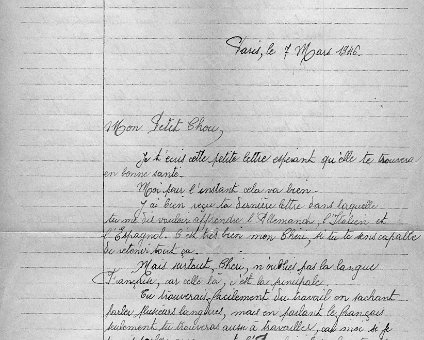 Paris, le 7 Mars 1946.
Mon Petit Chou,
Je t'écris cette petite lettre espérant qu'elle te trouvera
en bonne santé.
Moi pour l'instant cela va bien.
J'ai bien reçu ta dernière lettre dans laquelle
tu me dis vouloir apprendre l'Allemand, l'Italien et
l'Espagnol. C'est très bien mon Chou, si tu te sens capable
de retenir tout ça.
Mais surtout, Chou, n'oublies pas la langue
Française, car elle là, c'est la principale.
Tu trouverais facilement du travail en sachant
parler plusieurs langues, mais en parlant le français
seulement tu trouveras aussi à travailler, car moi je